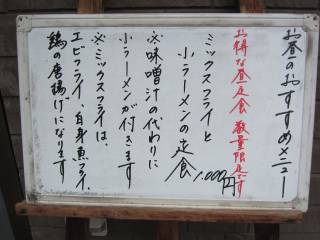 お昼のおすすめメニュー
お得な昼定食 数量限定です
ミックスフライと
小ラーメンの定食
1,000円
※味噌汁の代わりに
小ラーメンが付きます
※ミックスフライは、
エビフライ、白身魚フライ、
鶏の唐揚げになります